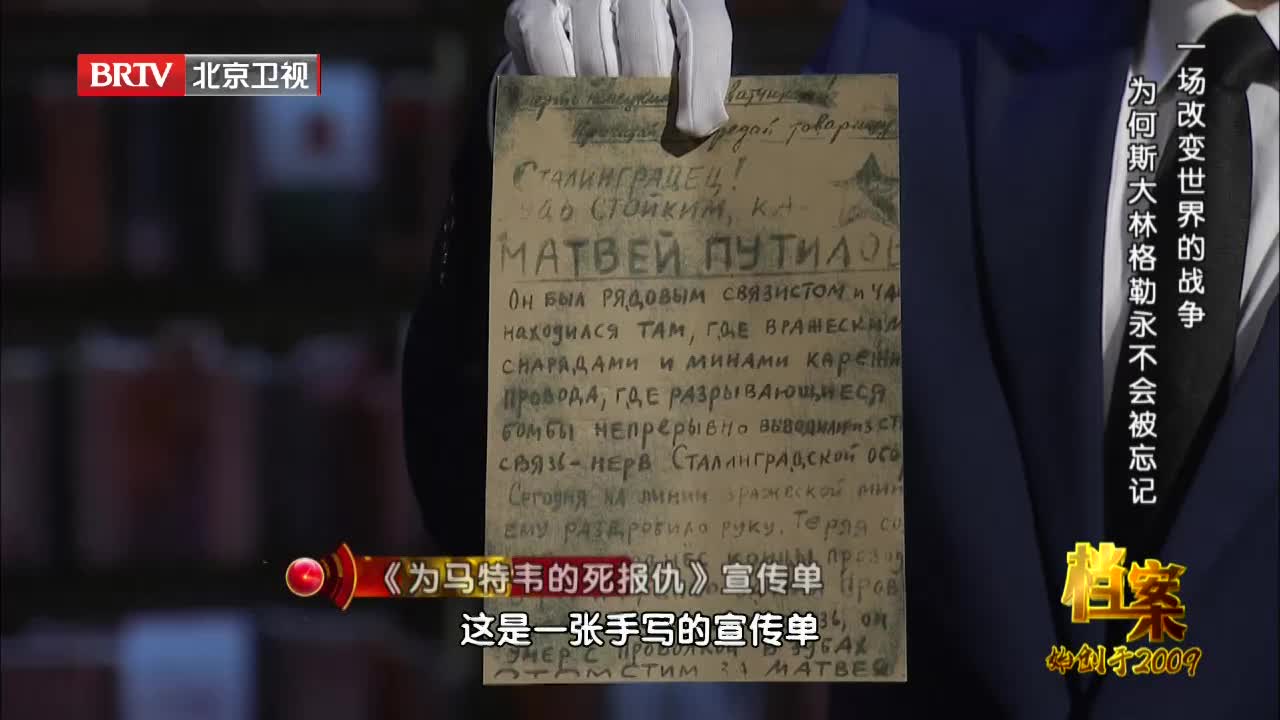 BRTV 北京卫视
一场改变世界的战争
为何斯大林格勒永不会被忘记
товарищу
СТАЛИНГРАДЕЦ!
СТОЙКИМ, КА-
МАТВЕЙ ПУТИЛОВ
ОН БЫЛ РЯДОВЫМ СВЯЗИСТОМ И ЧА
НАХОДИЛСЯ ТАМ, ГДЕ ВРАЖЕСКИМ
СНАРЯДАМИ И МИНАМИ КАРЕЖИ
ПРОВОДА, ГДЕ РАЗРЫВАЮЩИЕСЯ
БОМБЫ НЕПРЕРЫВНО ВЫВОДИЛИ ИЗ СТ
СВЯЗЬ-НЕРВ СТАЛИНГРАДСКОЙ ОБО
СЕГОДНЯ НА ЛИНИИ ВРАЖЕСКОЙ МИН
ЕМУ РАЗДРОБИЛО РУКУ. ТЕРЯЯ СО
КОНЦЫ ПРОВОД
ОН
УМЕР С ПРОВОЛКОЙ В ЗУБАХ
ОТОМСТИМ ЗА МАТВЕЯ
《为马特韦的死报仇》宣传单
这是一张手写的宣传单
档案
始创于2009